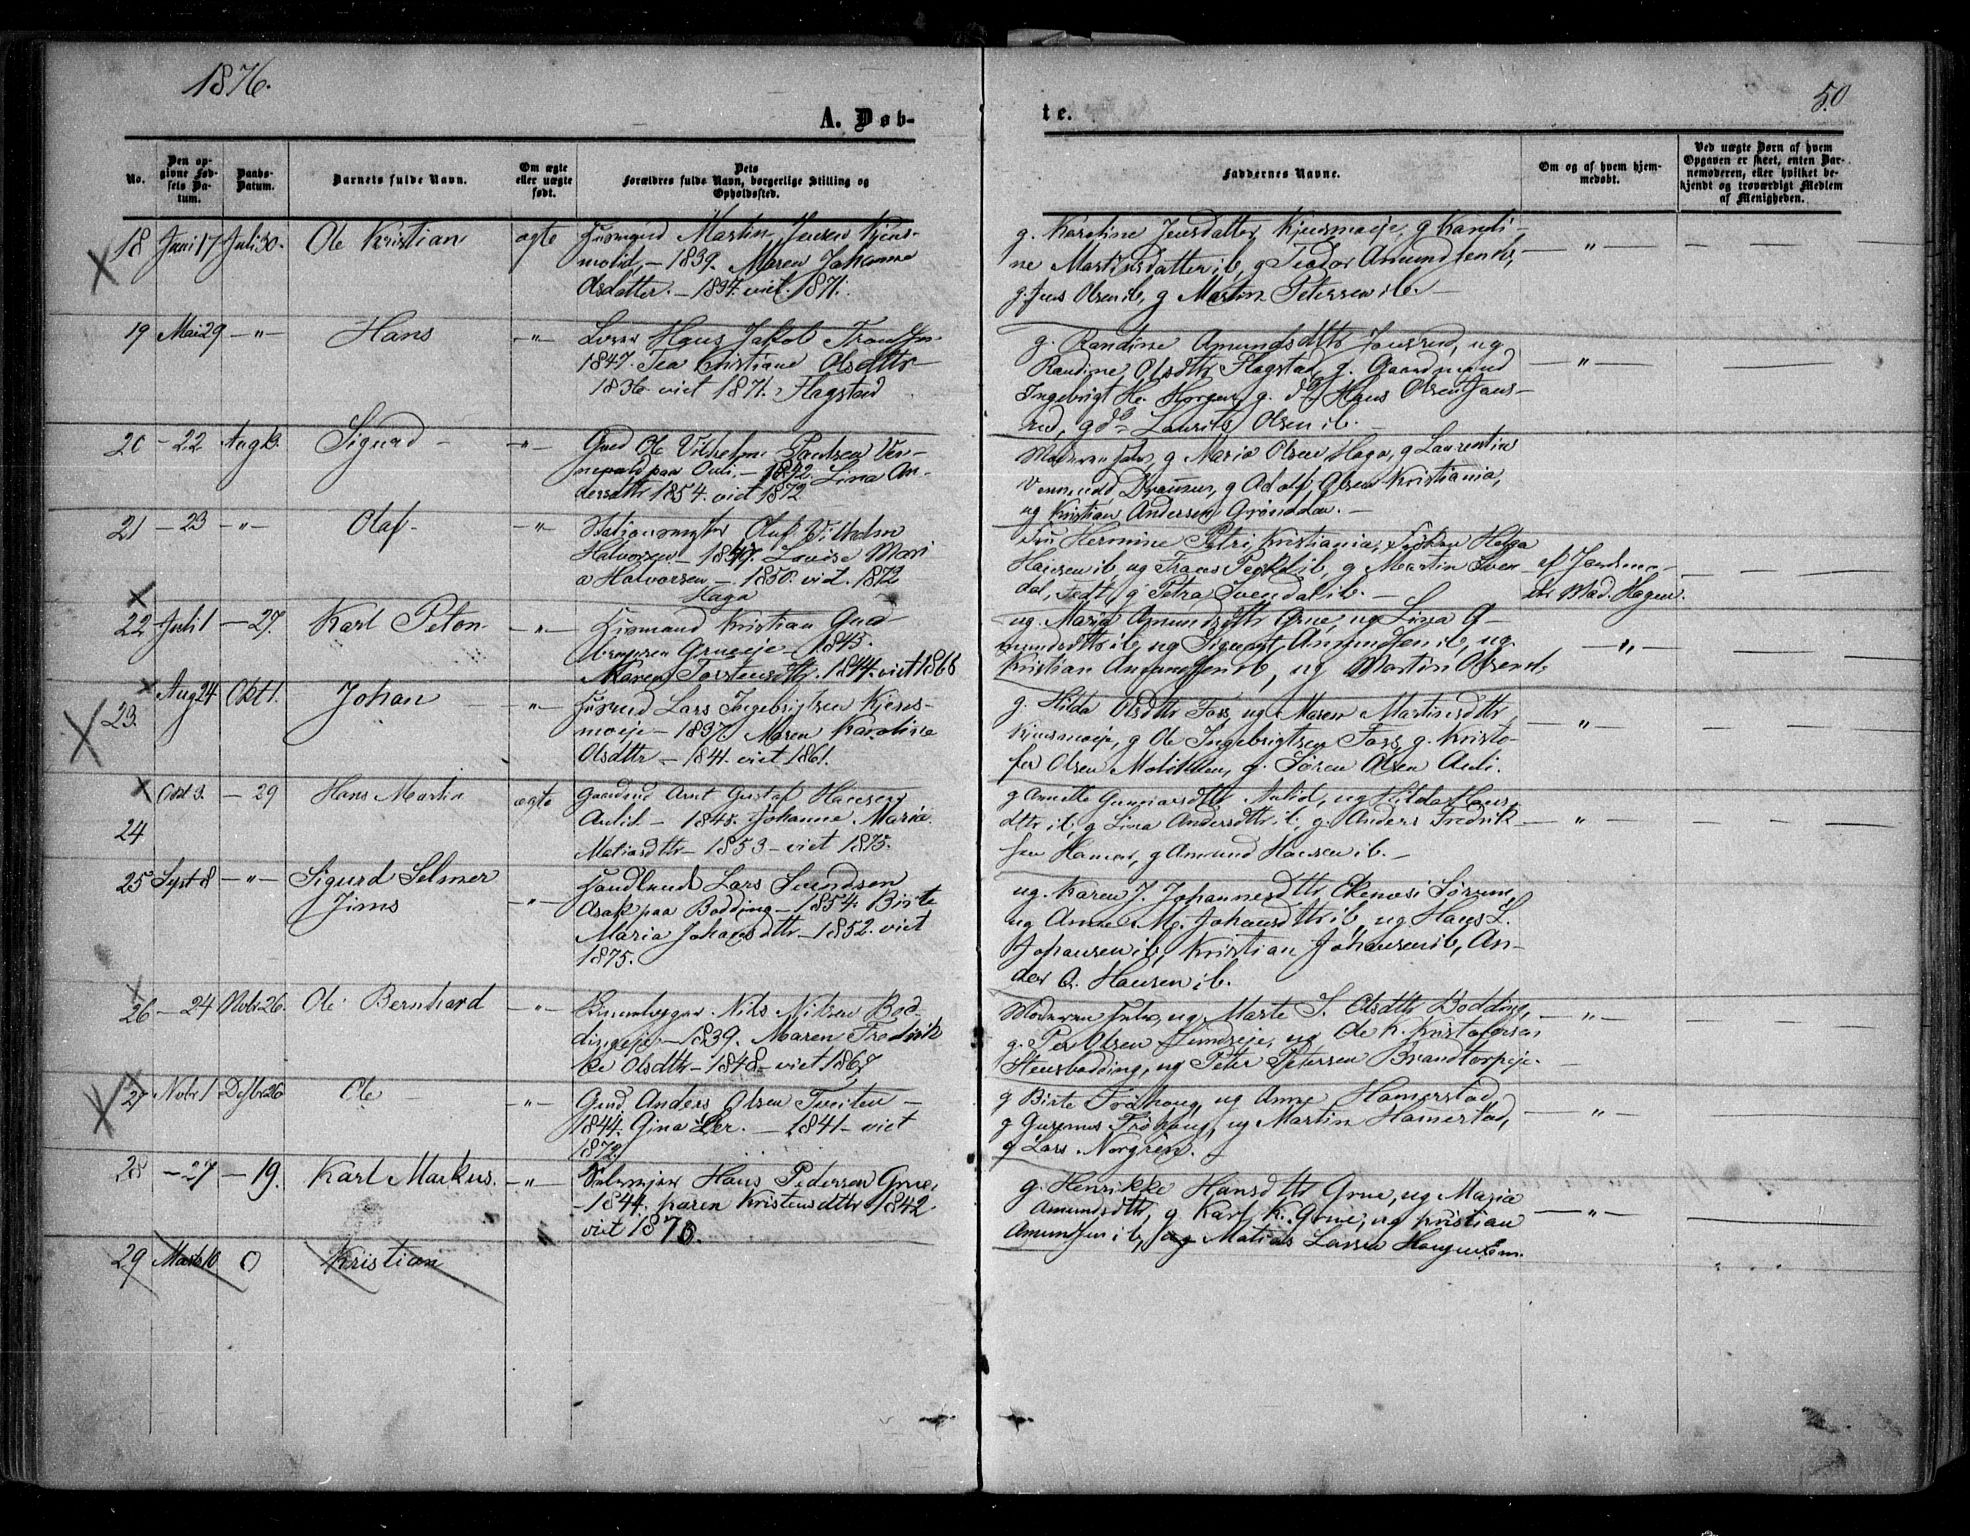 1876.
50
A. Døb-
te.
No.
Den op-
givne Fød-
sels Da-
tum.
Daabs-
Datum.
Barnets fulde Navn.
Om ægte
eller uægte
født.
Dets
Forældres fulde Navn, borgerlige Stilling og
Opholdssted.
Faddernes Navne.
Om og af hvem hjem-
medøbt.
Ved uægte Børn af hvem
Opgaven er skeet, enten Bar-
nemoderen, eller hvilket be-
kjendt og troværdigt Medlem
af Menigheden.
18 Juni 17 Juli 30. Ole Kristian ægte Husmand Martin Jensen Kjens-
molid, – 1839. Maren Johanne
Olsdatter. – 1834. viet. 1871.
g. Karoline Jensdatter Kjusmoeje, g Kandi-
ne Martinsdatter ib, g Teodor Amundsen ib,
g. Jens Olsen ib, g Martin Petersen ib. – – " –
19 Mai 29 – " – Hans – " – Lærer Hans Jakob
1847. Tea Kristiane Olsdttr
1836 viet 1871. Flagstad
g. Randine Amundsdttr Jonsrud, ug
Randine Olsdttr Flagstad, g. Gaardmand
Ingebrigt He. Horgen, g. do Hans Olsen Jons-
rud, g do Laurits Olsen ib. – – " –
20 – 22 Aug 13. Sigurd – – " – Gmd Ole Vilhelm Paulsen Ven-
paa Auli. – 1842. Lina An-
dersdttr 1854. viet 1872
Moderen selv, g Maria Olsen Haga, g Laurentius
Vennevold Drausur, g Adolf Olsen Kristiania,
ug Kristian Andersen Grønddal. –
21 – 23 – " – Olaf – – " – Stationsmester Oluf Vilhelm
Halvorsen – 1847. Lovise Mari
a Halvorsen – 1850. vid. 1872
Haga
Fru Hermine Petri Kristiania, Frøken Helga
Hansen ib ug Frans Peckel ib, g Martin Sven-
dal, Fedt, g Petra Svendal ib. –
af Jordmo-
der Mad. Hagen.
22 Juli 1 – 27. Karl Peton – " – Husmand Kristian Gud
brensen Grueeje – 1845.
Maren Torstensdttr. 1844. viet 1866
ug. Maria Amundsdttr Grue, ug Lina A-
mundsdttr ib, ug Sigvart Amundsen ib, ug
Kristian Amundsen ib, ug Martin Olsen ib. – " –
23. Aug 24 Okt 1. Johan – " – Husmd Lars Ingebrigtsen Kjens-
moeje – 1837. Maren Karoline
Olsdttr – 1841. viet 1861.
g. Hilda Olsdttr Foss, ug Maren Martinsdttr
Kjusmoeje, g Ole Ingebrigtsen Foss, g. Kristo-
fer Olsen Moliteien, g. Søren Olsen Auli. – " –
24 Okt 3. – 29 Hans Martin ægte Gaardmd Arnt Gustaf Hansen
Aulid – 1845. Johanne Maria
Matiasdttr – 1853 – viet 1875.
g Annette Gunnarsdttr Aulid, ug Hilda Hans-
dttr ib, g Lina Andersdttr ib, g. Anders Fredrik-
sen Hamar, g Amund Hansen ib. – – " –
25 Sept 8 – " – Sigurd Selmer
Jims – " – Handlende Lars Svendsen
Asak paa Bodding – 1854. Birte
Maria Johansdttr – 1852. viet
1875.
ug. Karen J. Johannesdttr Ekenæsi Sørum,
ug Anne M. Johansdttr ib, ug Hans L.
Johansen ib, Kristian Johansen ib, An-
der O. Hansen ib.
26 – 24 Novbr 26. Ole Bernhard – " – Nils Nilsen Bod-
dingeje – 1839. Maren Fredrik-
ke Olsdttr – 1848 – viet 1867
Moderen selv, ug Marte S. Olsdttr Bodding,
g. Per Olsen Sundseje, ug Ole K. Kristofersen
Stensbodding, ug Peter Petersen Brandtorpeje.
27 Novbr 1 Desbr 26 Ole – – " – Gmd. Anders Olsen Tveiten –
1844. Gina Ler. – 1841 – viet
1872
g Birte Frøhaug, ug Anne Hamerstad,
g Gusernus Frøhaug, ug Martin Hamerstad,
g Lars Norgren. – " –
28 – 27 – 19. Karl Markus. – " – Hans Pedersen Grue,
– 1844. Karen Kristensdttr 1842
viet 1870.
g. Henrikke Hansdttr Grue, ug Maria
Amundsdttr, g Karl K. Grue, ug Kristian
Amundsen ib, ug Matias Larsen Haugersem. – " –
29 Marts 10 0 Kristian